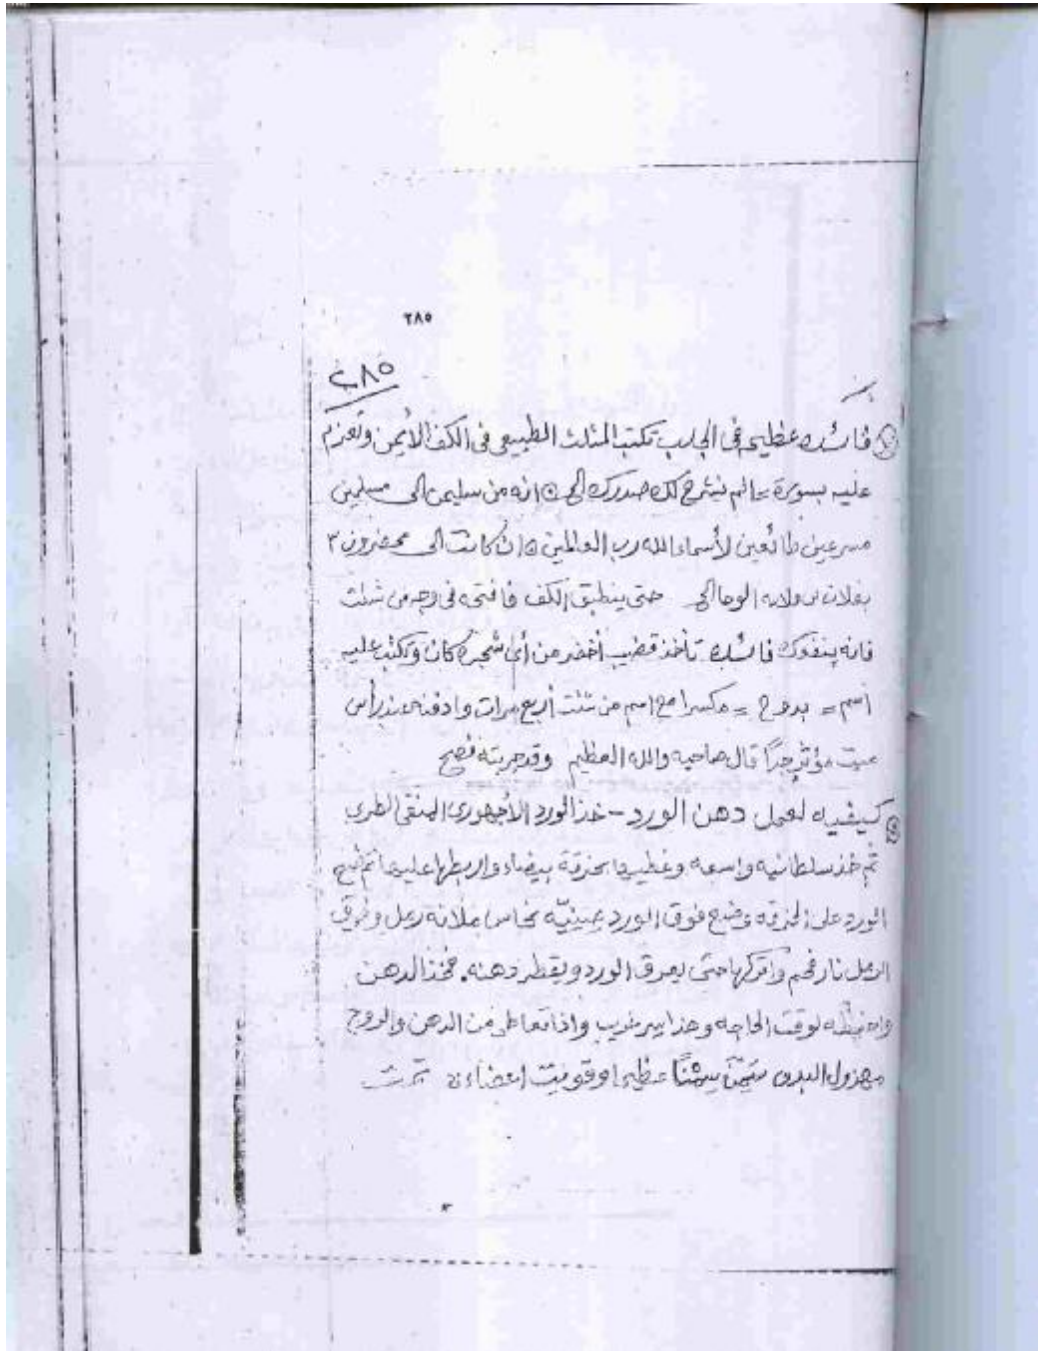 ٢٨٥
٢٨٥
فائده عظيمه في الجلب تكتب المثلث الطبيعي في الكف الأيمن وتعزم
عليه بسورة = الم نشرح لك صدرك الى انه من سليمن الى مسلمين
مسرعين طائعين لأسماء الله رب العالمين ان كانت الى محضرون ٣
بفلان بن فلانه الوحا الى حتى ينطبق الكف فافتحه في وجه من شئت
فانه ينفذك فائده تأخذ قضيب أخضر من أي شجره كان وتكتب عليه
اسم = بدوح = مكسرا مع اسم من شئت أربع مرات وادفنه عند رأس
ميت مؤثر جدًا قال صاحبه والله العظيم وقد جربته فصح
كيفيه لعمل دهن الورد - خذ الورد الأجهوري المنقى الطري
ثم خذ سلطانيه واسعه وغطيها بخرقة بيضاء واربطها عليها ثم ضع
الورد على الخرقه وضع فوق الورد صينيّه نحاس ملانه رمل وفوق
الرمل نار فحم واتركها حتى يعرق الورد ويقطر دهنه. فخذ الدهن
واحفظه لوقت الحاجه وهذا سر غريب واذا تعاطى من الدهن والروح
مهزول البدن سَمِنَ سِمْنًا عظيما وقويت اعضاءه تمت